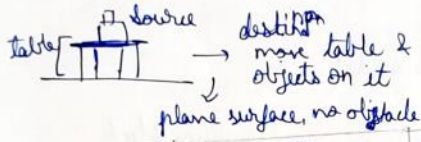 source
table
destinⁿ
→ move table &
objects on it
plane surface, no obstacle